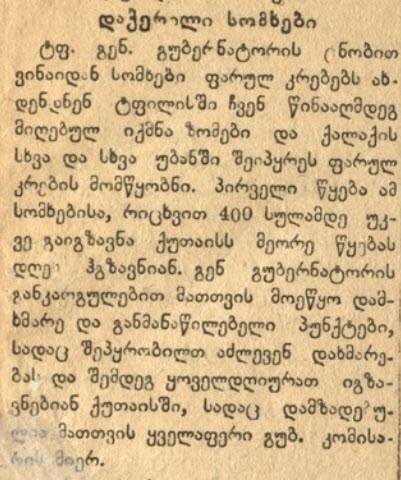 დაჭერილი სომხები
ტფ. გენ. გუბერნატორის ცნობით
ვინაიდან სომხები ფარულ კრებებს ახ-
დენდნენ ტფილისში ჩვენ წინააღმდეგ
მიღებულ იქმნა ზომები და ქალაქის
სხვა და სხვა უბანში შეიპყრეს ფარულ
კრების მომწყობნი. პირველი წყება ამ
სომხებისა, რიცხვით 400 სულამდე უკ-
ვე გაიგზავნა ქუთაისს მეორე წყებას
დღეს ჰგზავნიან. გენ გუბერნატორის
განკარგულებით მათთვის მოეწყო დამ-
ხმარე და განმანაწილებელი პუნქტები,
სადაც შეპყრობილთ აძლევენ დახმარე-
ბას და შემდეგ ყოველდღიურათ იგზა-
ვნებიან ქუთაისში, სადაც დამზადებუ-
ლია მათთვის ყველაფერი გუბ. კომისა-
რის მიერ.